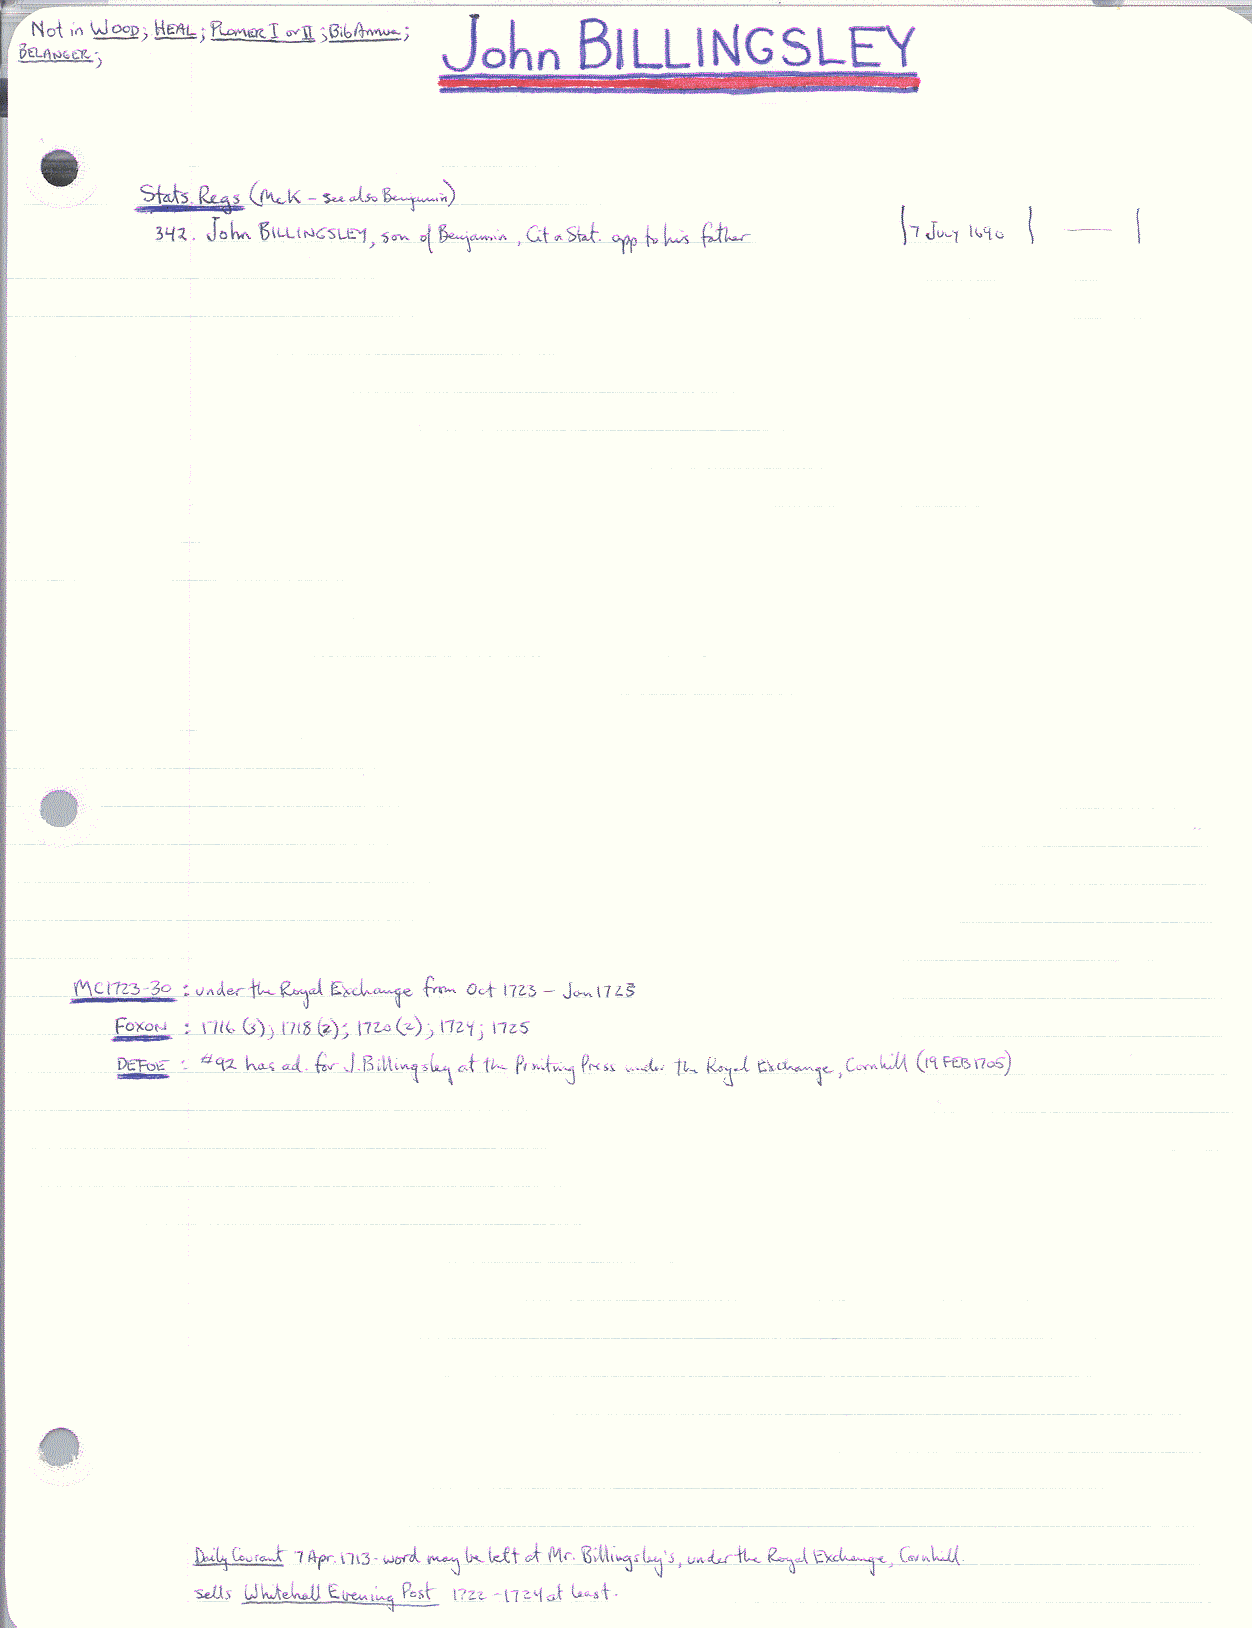 Not in WOOD; HEAL; PLOMER I or II; Bib Annua;
BELANGER;
John BILLINGSLEY
Stats. Regs (McK - see also Benjamin)
342. John BILLINGSLEY, son of Benjamin, Cit & Stat. app to his father 7 July 1690 —
MC1723-30 : under the Royal Exchange from Oct 1723 - Jan 1725
FOXON : 1716 (3); 1718 (2); 1720 (2); 1724; 1725
DEFOE : #92 has ad. for J. Billingsley at the Printing Press under the Royal Exchange, Cornhill (19 FEB 1705)
Daily Courant 7 Apr. 1713 - word may be left at Mr. Billingsley's, under the Royal Exchange, Cornhill.
sells Whitehall Evening Post 1722 - 1724 at least.